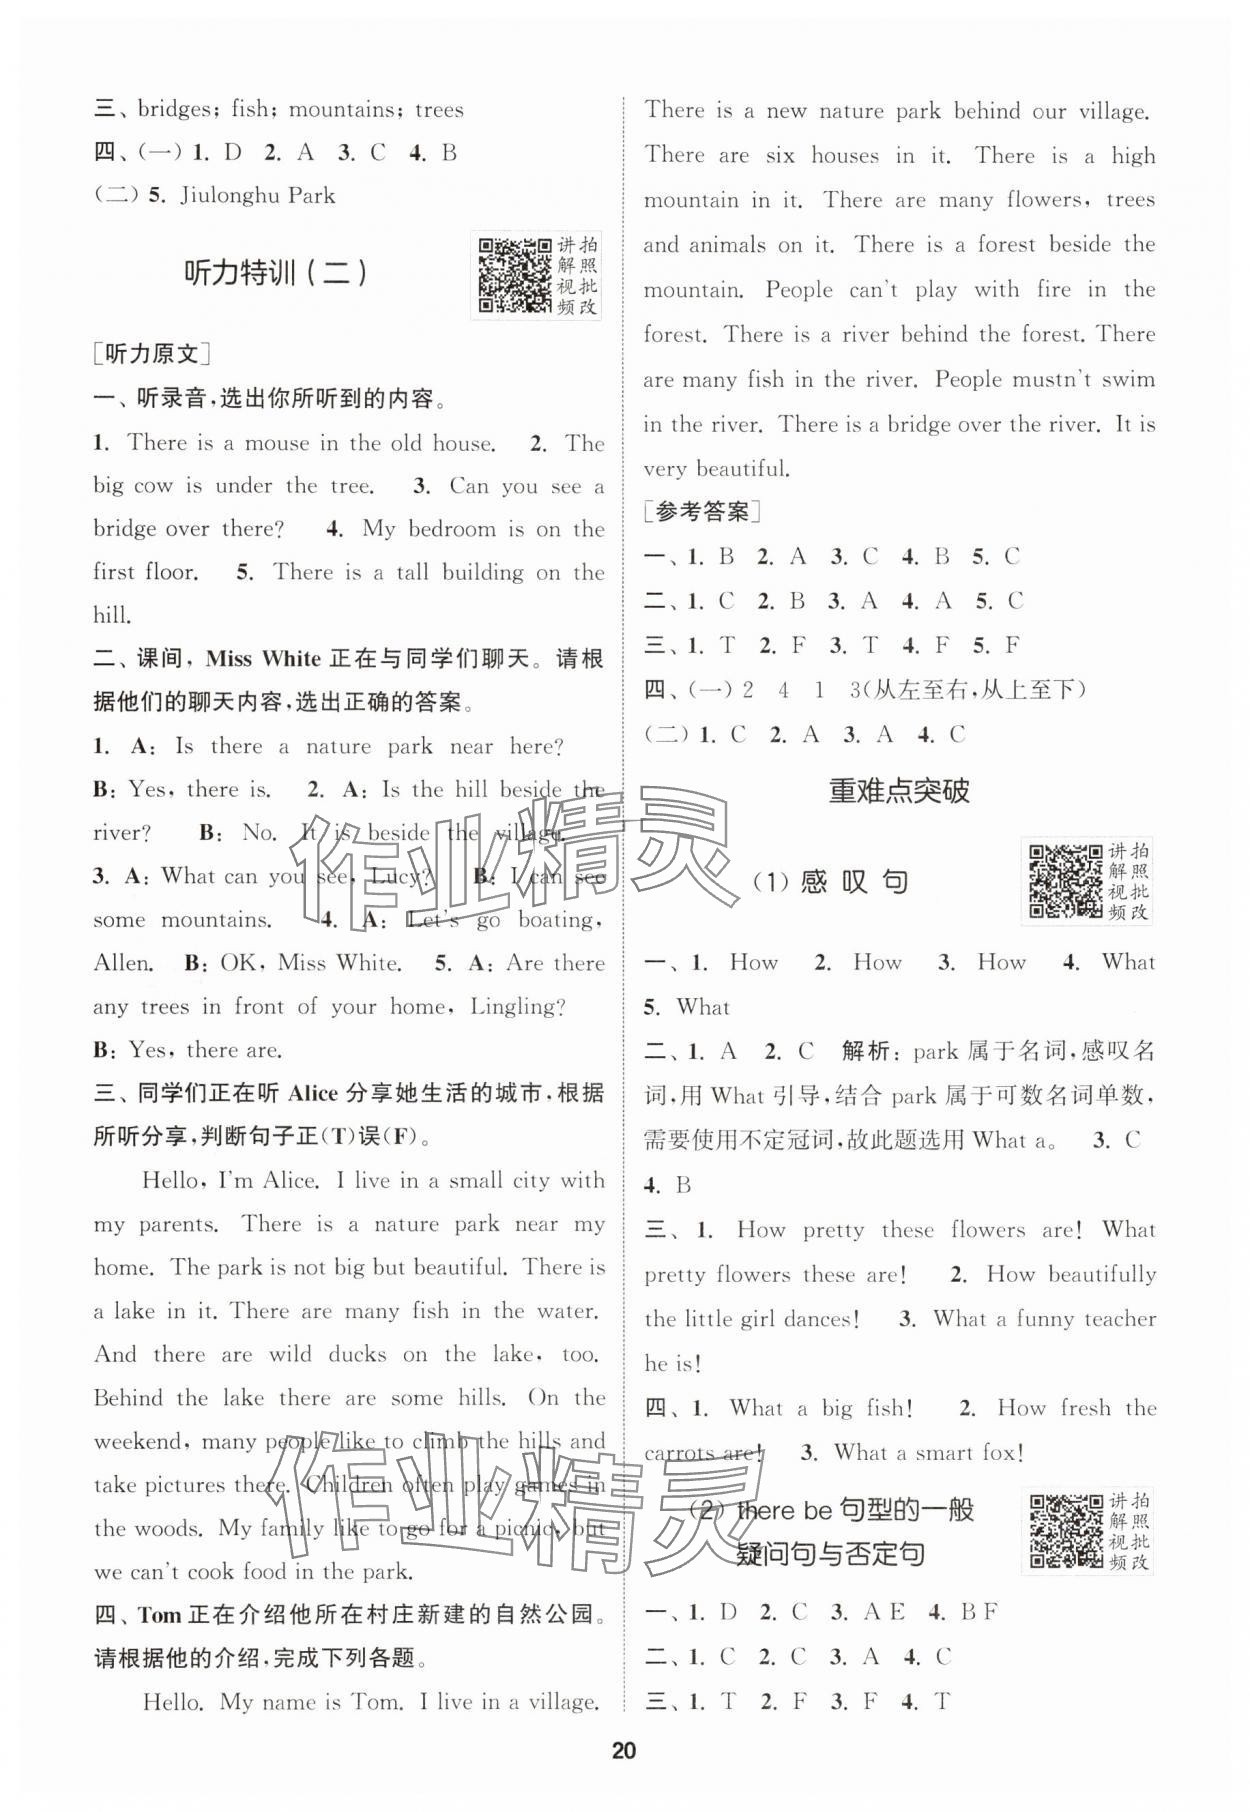 三、bridges; fish; mountains; trees
四、(一)1. D 2. A 3. C 4. B
(二)5. Jiulonghu Park
听力特训(二)
讲拍
解照
视批
频改
[听力原文]
一、听录音,选出你所听到的内容。
1. There is a mouse in the old house. 2. The
big cow is under the tree. 3. Can you see a
bridge over there? 4. My bedroom is on the
first floor. 5. There is a tall building on the
hill.
二、课间, Miss White 正在与同学们聊天。请根
据他们的聊天内容,选出正确的答案。
1. A: Is there a nature park near here?
B: Yes, there is. 2. A: Is the hill beside the
river? B: No. It is beside the village.
3. A: What can you see, Lucy? B: I can see
some mountains. 4. A: Let's go boating,
Allen. B: OK, Miss White. 5. A: Are there
any trees in front of your home, Lingling?
B: Yes, there are.
三、同学们正在听 Alice 分享她生活的城市,根据
所听分享,判断句子正(T)误(F)。
Hello, I'm Alice. I live in a small city with
my parents. There is a nature park near my
home. The park is not big but beautiful. There is
a lake in it. There are many fish in the water.
And there are wild ducks on the lake, too.
Behind the lake there are some hills. On the
weekend, many people like to climb the hills and
take pictures there. Children often play games in
the woods. My family like to go for a picnic, but
we can't cook food in the park.
四、Tom 正在介绍他所在村庄新建的自然公园。
请根据他的介绍,完成下列各题。
Hello. My name is Tom. I live in a village.
There is a new nature park behind our village.
There are six houses in it. There is a high
mountain in it. There are many flowers, trees
and animals on it. There is a forest beside the
mountain. People can't play with fire in the
forest. There is a river behind the forest. There
are many fish in the river. People mustn't swim
in the river. There is a bridge over the river. It is
very beautiful.
[参考答案]
一、1. B 2. A 3. C 4. B 5. C
二、1. C 2. B 3. A 4. A 5. C
三、1. T 2. F 3. T 4. F 5. F
四、(一)2 4 1 3(从左至右,从上至下)
(二)1. C 2. A 3. A 4. C
重难点突破
(1)感叹句
讲拍
解照
视批
频改
一、1. How 2. How 3. How 4. What
5. What
二、1. A 2. C 解析: park 属于名词,感叹名
词,用 What 引导,结合 park 属于可数名词单数,
需要使用不定冠词,故此题选用 What a。 3. C
4. B
三、1. How pretty these flowers are! What
pretty flowers these are! 2. How beautifully
the little girl dances! 3. What a funny teacher
he is!
四、1. What a big fish! 2. How fresh the
carrots are! 3. What a smart fox!
(2) there be 句型的一般
疑问句与否定句
讲拍
解照
视批
频改
一、1. D 2. C 3. A E 4. B F
二、1. C 2. C 3. A 4. C
三、1. T 2. F 3. F 4. T
20
作业精灵
作业精灵